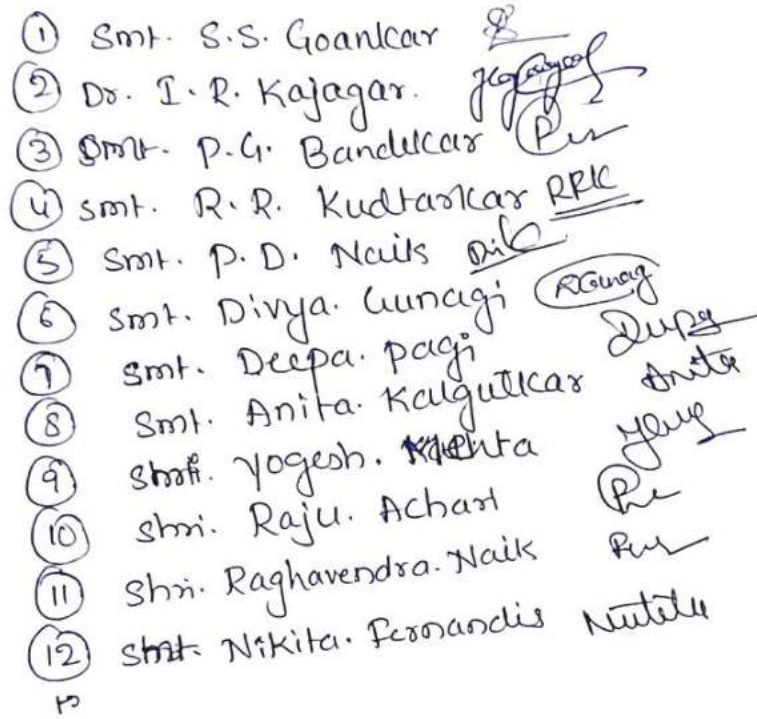 1 Smt. S.S. Goankar
2 Dr. I. R. Kajagar.
3 Smt. P.G. Bandekar
4 smt. R. R. Kudtarkar RRK
5 Smt. P. D. Naik
6 Smt. Divya. Gunagi RGunag
7 Smt. Deepa. pagi Dupa
8 Smt. Anita. Kalgutkar Anita
9 Shri. Yogesh.
10 Shri. Raju. Achari
11 Shri. Raghavendra. Naik
12 Smt. Nikita. Fernandis